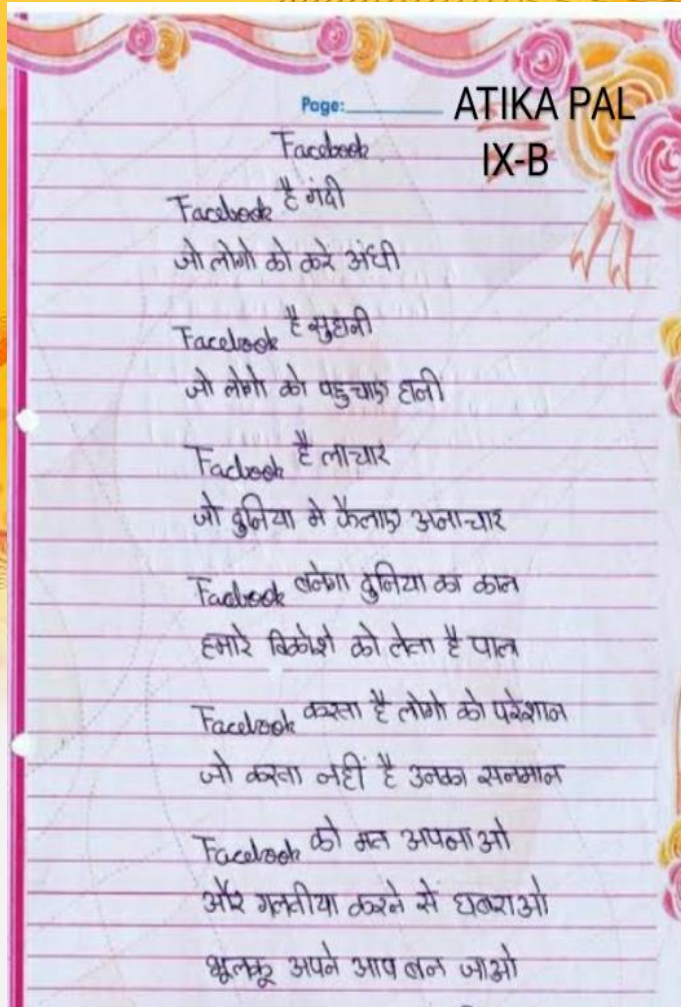 Page:
ATIKA PAL
IX-B
Facebook
Facebook है गंदी
जो लोगो को करे अंधी
Facebook है सुहानी
जो लोगो को पहुचाए हानी
Facbook है लाचार
जो दुनिया मे फैलाए अनाचार
Facbook बनेगा दुनिया का काल
हमारे को लेता है पाल
Facebook करता है लोगो को परेशान
जो करता नहीं है उनका सनमान
Facebook को मत अपनाओ
और गलतीया करने से घबराओ
अपने आप बन जाओ